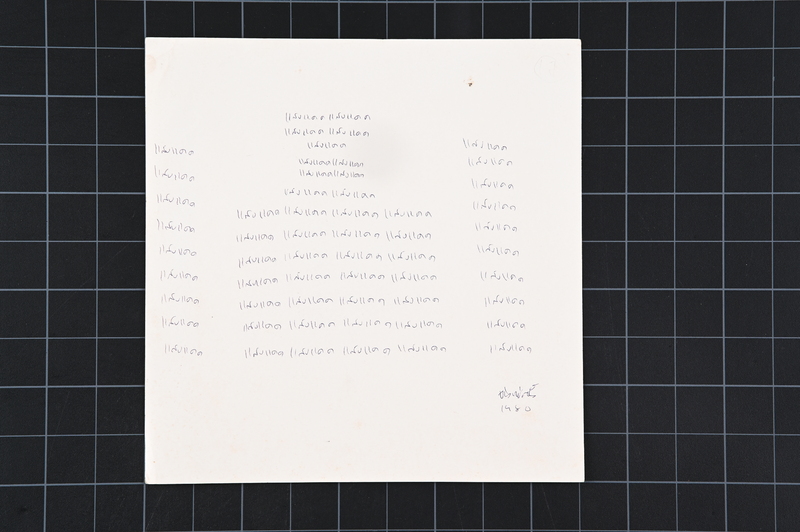 แสงแดด แสงแดด
แสงแดด แสงแดด
แสงแดด แสงแดด แสงแดด
แสงแดด แสงแดด แสงแดด
แสงแดด แสงแดด แสงแดด แสงแดด
แสงแดด แสงแดด แสงแดด แสงแดด
แสงแดด แสงแดด แสงแดด แสงแดด
แสงแดด แสงแดด แสงแดด แสงแดด แสงแดด แสงแดด
แสงแดด แสงแดด แสงแดด แสงแดด แสงแดด แสงแดด
แสงแดด แสงแดด แสงแดด แสงแดด แสงแดด แสงแดด
แสงแดด แสงแดด แสงแดด แสงแดด แสงแดด แสงแดด
แสงแดด แสงแดด แสงแดด แสงแดด แสงแดด แสงแดด
แสงแดด แสงแดด แสงแดด แสงแดด แสงแดด แสงแดด